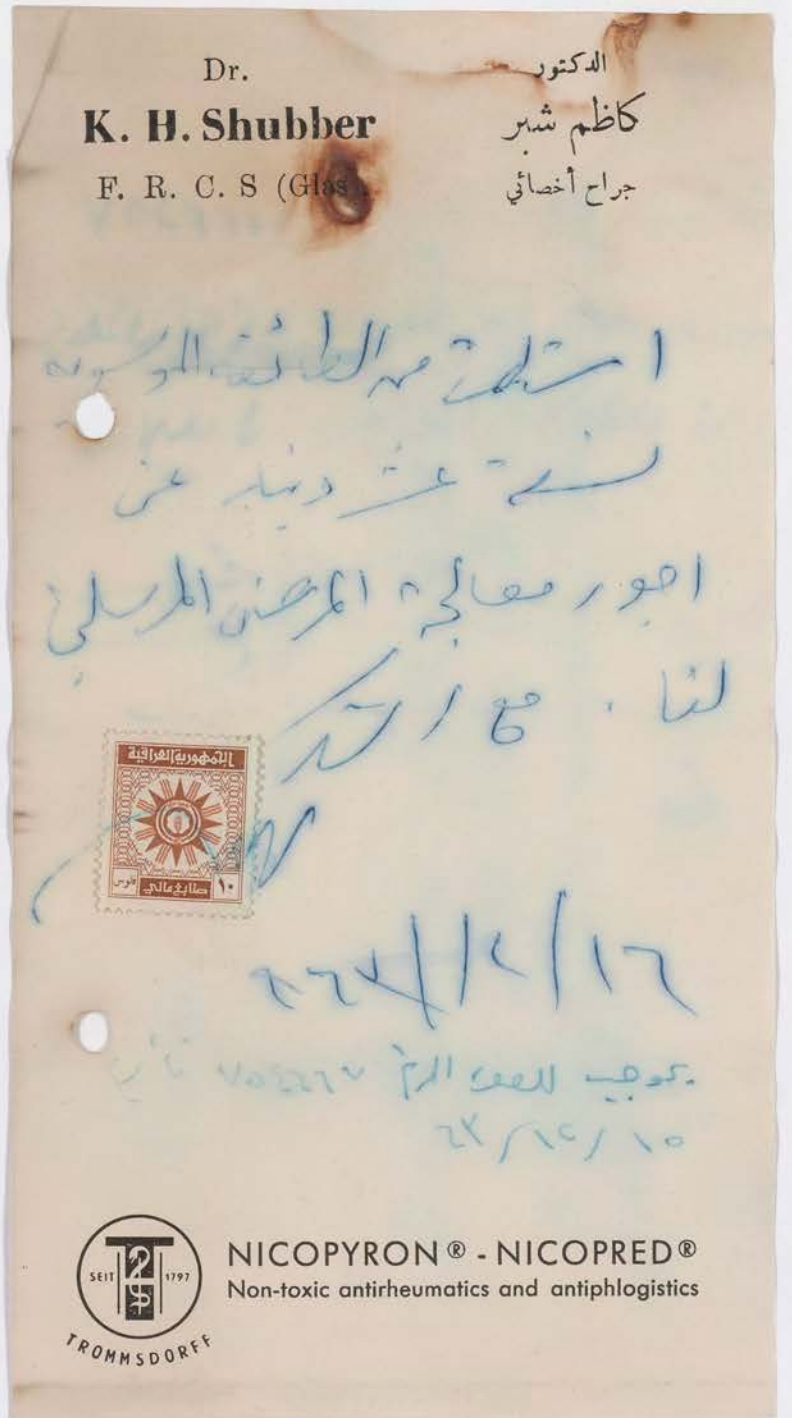 Dr.
K. H. Shubber
F. R. C. S (Glas).
الدكتور
كاظم شبر
جراح أخصائي
استلمت من الطائفة الموسوية
عشر دينار عن
اجور معالجة المرضى المرسلين
لنا . مع الشكر
الجمهورية العراقية
١٠ طابع مالي فلس
١٦/١٢/٩٦٣
بموجب الصك المرقم
١٥/١٢/٦٣
SEIT 1797
TROMMSDORFF
NICOPYRON® - NICOPRED®
Non-toxic antirheumatics and antiphlogistics